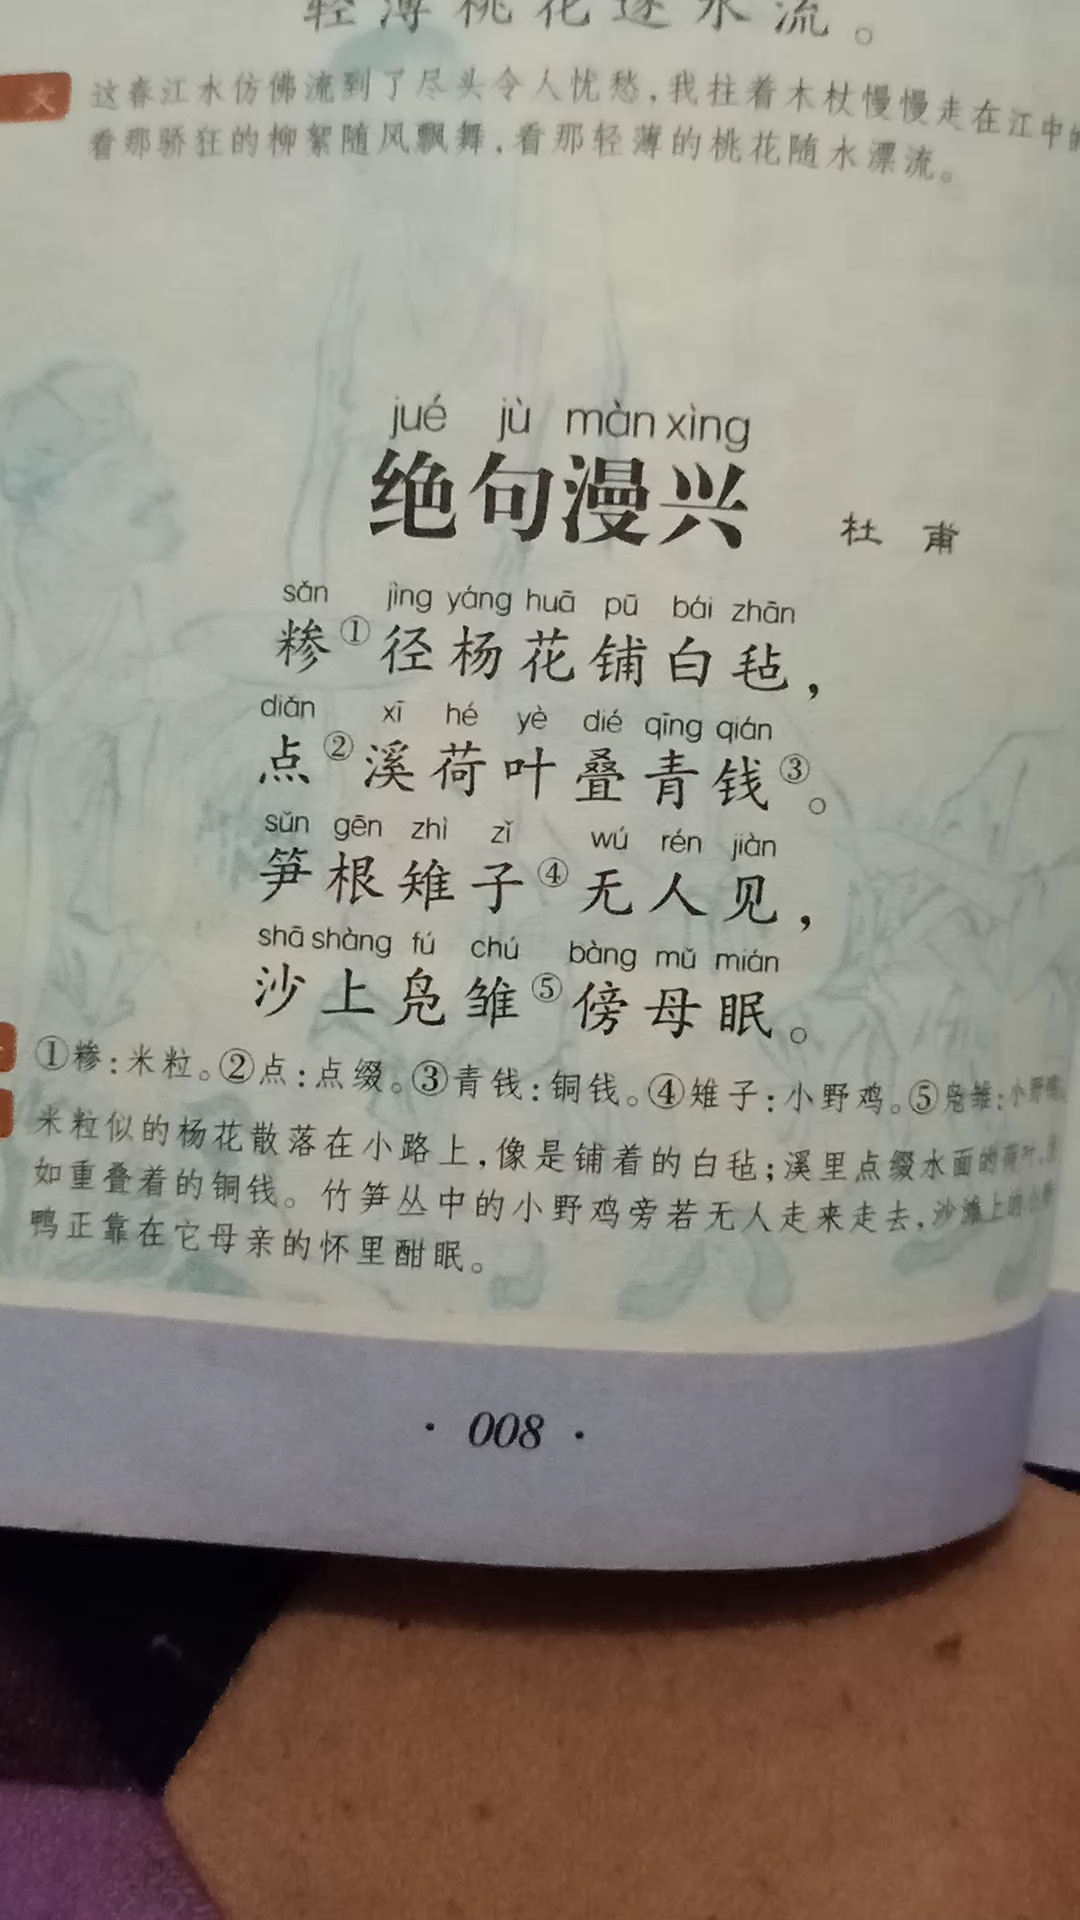 轻薄桃花逐水流。
文
这春江水仿佛流到了尽头令人忧愁,我拄着木杖慢慢走在江中
看那骄狂的柳絮随风飘舞,看那轻薄的桃花随水漂流。
jué jù màn xìng
绝句漫兴 杜甫
sǎn jìng yáng huā pū bái zhān
糁①径杨花铺白毡,
diǎn xī hé yè dié qīng qián
点②溪荷叶叠青钱③。
sǔn gēn zhì zǐ wú rén jiàn
笋根雉子④无人见,
shā shàng fú chú bàng mǔ mián
沙上凫雏⑤傍母眠。
①糁:米粒。②点:点缀。③青钱:铜钱。④雉子:小野鸡。⑤凫雏:小野
米粒似的杨花散落在小路上,像是铺着的白毡;溪里点缀水面的荷叶,
如重叠着的铜钱。竹笋丛中的小野鸡旁若无人走来走去,沙滩上的小
鸭正靠在它母亲的怀里酣眠。
· 008 ·